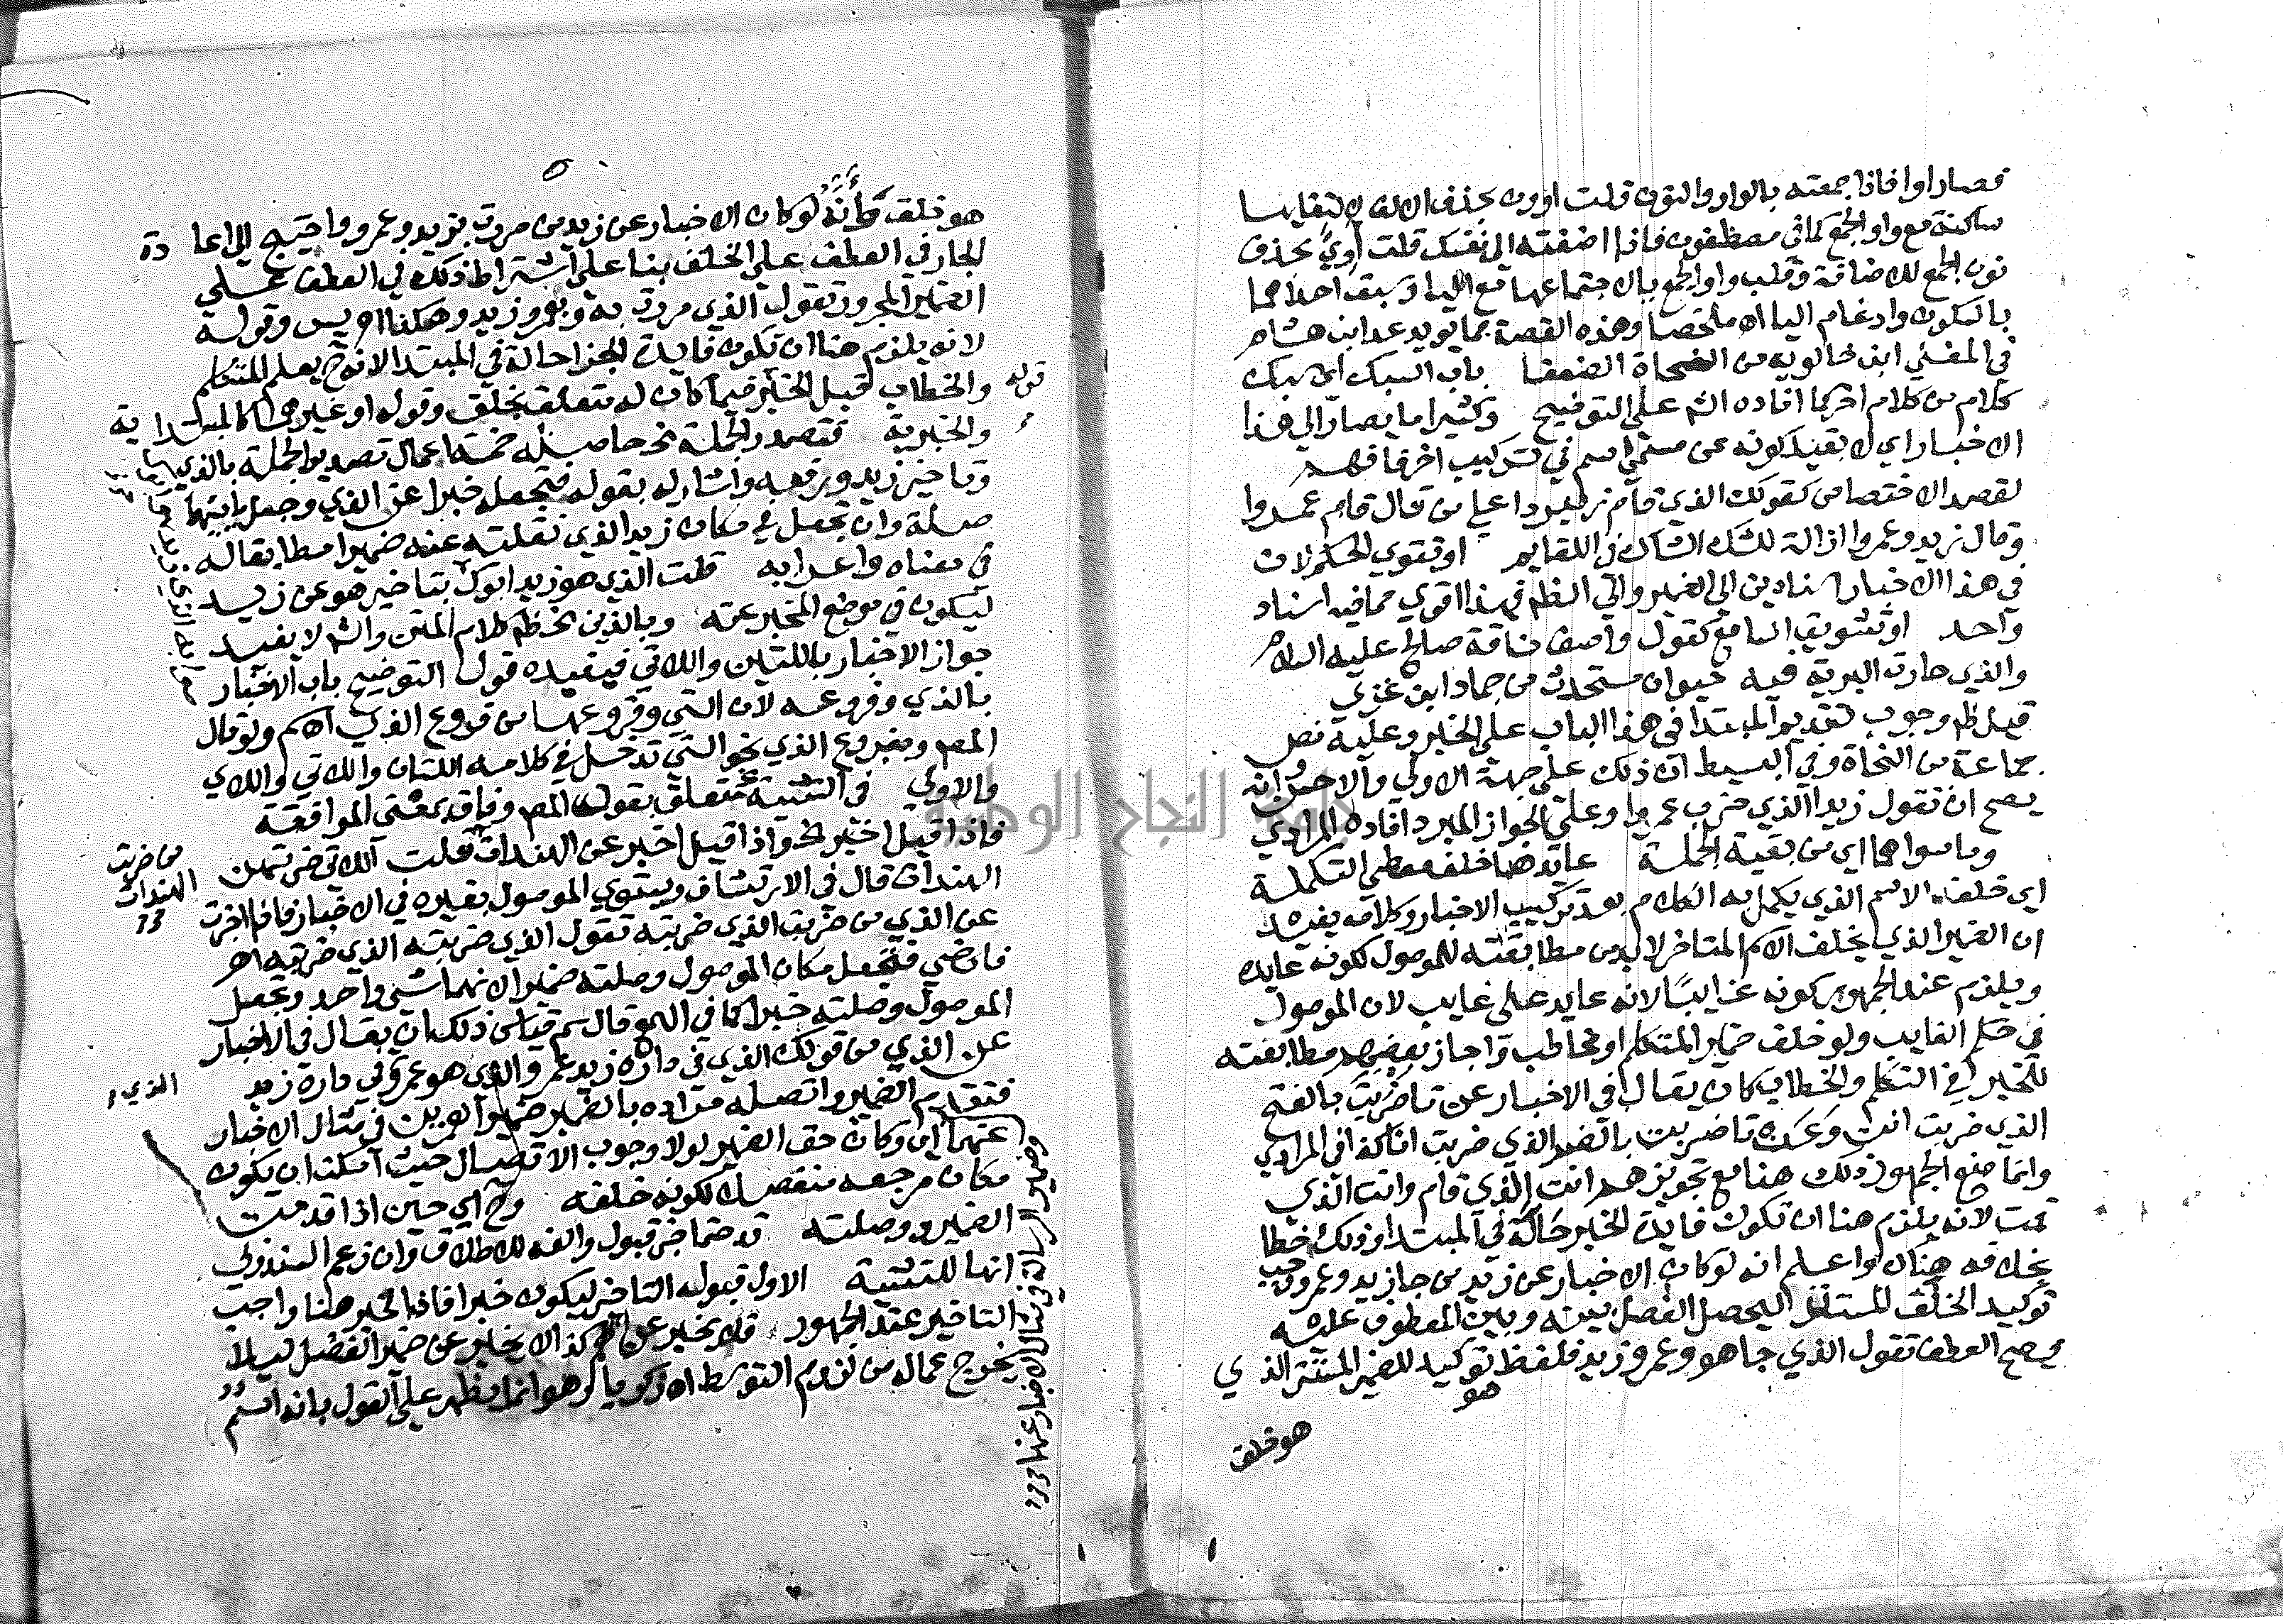 فصار اوا فاذا جمعته بالواو والنون قلت اوون بحذف الالف لالتقايها
ساكنة مع واو الجمع كما في مصطفون فاذا اضفته الى نفسك قلت اوي بحذف
نون الجمع للاضافة وقلب واو الجمع يا لاجتماعها مع اليا وسبق احداهما
بالسكون وادغام اليا اه ملخصا وهذه القصة مما يويد عد ابن هشام
في المغني ابن خالويه من النحاة الضعفا باب السبك اي سبك
كلام من كلام اخر كما افاده الش على التوضيح وكثيرا ما يصار الى هذا
الاخبار اي لا بقيد كونه عن مسمى اسم في تركيب اخر فافهم
لقصد الاختصاص كقولك الذي قام زيد ردا على من قال قام عمرو
وقال زيد وعمرو ازالة للشك الشاك في القايم او تقوي الحكم لان
في هذا الاخبار اسنادين الى الضمير والى الظم فهذا اقوى مما فيه اسناد
واحد او تشويق السامع كقول واصف ناقة صالح عليه السلام
والذي حارت البرية فيه حيوان مستحدث من جماد ابن غزي
قبل ظم وجوب تقديم المبتدا في هذا الباب على الخبر وعليه نص
جماعة من النحاة وفي البسيط ان ذلك على جهة الاولى والاحسن انه
يصح ان تقول زيد الذي ضرب عمرا وعلى الجواز المبرد افاده المرادي
وما سواهما اي من بقية الجملة عايدها خلف معطي التكملة
اي خلف الاسم الذي يكمل به الكلام بعد تركيب الاخبار وكلامه يفيد
ان الضمير الذي يخلف الاسم المتاخر لابد من مطابقته للموصول لكونه عايده
ويلزم عند الجمهور كونه غايبا لانه عايد على غايب لان الموصول
في حكم الغايب ولو خلف ضمير المتكلم او مخاطب واجاز بعضهم مطابقته
للخبر في التكلم والخطاب كان يقال في الاخبار عن تا ضربت بالفتح
الذي ضربت انت وعن تا ضربت بالضم الذي ضربت انا كذا في المرادي
وانما منع الجمهور ذلك هنا مع تجويزهم انت الذي قام وانت الذي
قمت لانه يلزم هنا ان تكون فايدة الخبر حاصلة في المبتدا وذلك خطا
بخلافه هناك واعلم انه لو كان الاخبار عن زيد من جا زيد وعمرو وجب
توكيد الخلف المستتر ليحصل الفصل بينه وبين المعطوف عليه
ويصح العطف تقول الذي جا هو وعمرو زيد فلفظ هو توكيد للضمير المستتر الذي
هو خلف
هو خلف وكانه لو كان الاخبار عن زيد من مررت بزيد وعمرو واحتيج الى اعادة
الجار في العطف على الخلف بنا على اشتراط ذلك في العطف على
الضمير المجرور تقول الذي مررت به وبعمرو زيد وهكذا اه يس وقوله
لانه يلزم هنا ان تكون فايدة الخبر احالة في المبتدا لانه ح يعلم المتكلم
والخطاب قبل الخبر فيما كان له متعلق بخلق وقوله او غيرهما كالمبتدايه
قوله
والخبرية فتصدر الجملة نحو حاصله خمسة اعمال تصدير الجملة بالذي
وتاخير زيد ورفعه واشار له بقوله فتجعله خبرا عن الذي وجعل ما بينهما
صلة وان تجعل في مكان زيد الذي نقلته عنه ضميرا مطابقا له
في معناه واعرابه قلت الذي هو زيد ابوك بتاخير هو عن زيد
ليكون في موضع المخبر عنه وبالذين نحو ظم كلام المتن والش لا يفيد
جواز الاخبار باللتين واللاتي فيفيده قول التوضيح باب الاخبار
بالذي وفروعه لان التي وفروعها من فروع الذي اه سم ولو قال
المصم وبفروع الذي نحو التي تدخل في كلامه اللتان واللاتي واللاي
والاولى في التثنية متعلق بقول المصم وفاق بمعنى الموافقة
فاذا قيل اخبر الخ واذا قيل اخبر عن الهندات قلت اللاتي ضربتهن
من ضربت الهندات
الهندات قال في الارتشاف ويستوي الموصول بغيره في الاخبار فاذا اخبرت
عن الذي من ضربت الذي ضربته تقول الذي ضربته الذي ضربته اه
فارضي فتجعل مكان الموصول وصلته ضميرا لانهما شي واحد وتجعل
الموصول وصلته خبرا كما في الهمع قال سم قياس ذلك ان يقال في الاخبار
عن الذي من قولك الذي في داره زيد عمرو الذي هو عمرو في داره زيد
الذي
فتقدم الضمير واتصله مراده بالضمير ضمير العمرين في مثال الاخبار
عنهما اي وكان حق الضمير لولا وجوب الاتصال حيث امكن ان يكون
مكان مرجعه منفصلا لكونه خلفه وح اي حين اذا قدمت
الضمير ووصلته قد حتما خبر قبول والفه للاطلاق وان زعم السندوبي
انها للتثنية الاول قبوله التاخير ليكون خبرا فانه الخبر هنا واجب
التاخير عند الجمهور فلا يخبر عن الخ كذا لا يخبر عن ضمير الفصل ليلا
يخرج عماله من لزوم التوسط اه زكريا وهو انما يظهر على القول بانه اسم
وضمير الرسالة في مثال الاخبار عنها